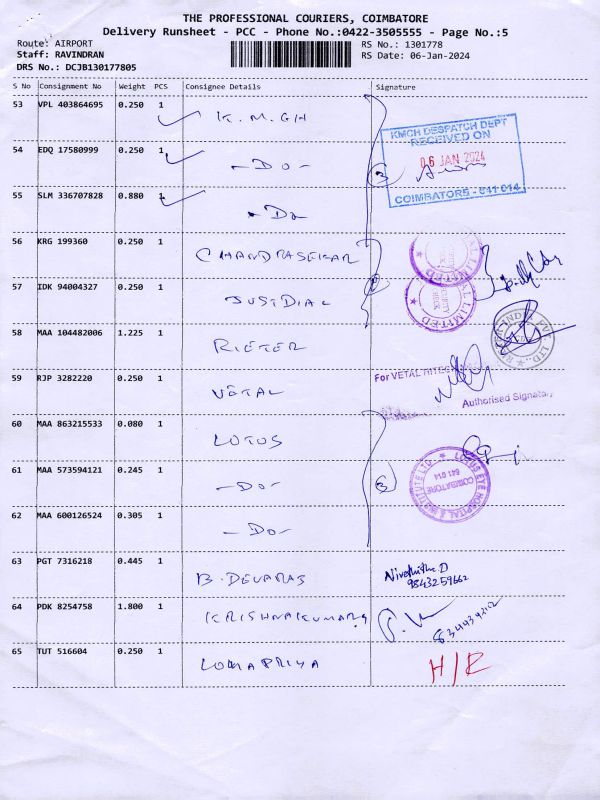 THE PROFESSIONAL COURIERS, COIMBATORE
Delivery Runsheet - PCC - Phone No.:0422-3505555 - Page No.:5
Route: AIRPORT
RS No.: 1301778
Staff: RAVINDRAN
RS Date: 06-Jan-2024
DRS No.: DCJB130177805
S No Consignment No Weight PCS Consignee Details Signature
53 VPL 403864695 0.250 1 K.M.GH
KMCH DESPATCH DEPT
RECEIVED ON
06 JAN 2024
COIMBATORE - 641 014
54 EDQ 17580999 0.250 1 -DO-
3
55 SLM 336707828 0.880 1 -DO
56 KRG 199360 0.250 1 CHANDRASEKAR
57 IDK 94004327 0.250 1 JUSTDIAL
58 MAA 104482006 1.225 1 RIETER
59 RJP 3282220 0.250 1 VETAL
For VETAL HITEC
Authorised Signatory
60 MAA 863215533 0.080 1 LOTUS
61 MAA 573594121 0.245 1 -DO-
3
LOTUS EYE HOSPITAL & INSTITUTE LTD
COIMBATORE
641 014
62 MAA 600126524 0.305 1 -DO-
63 PGT 7316218 0.445 1 B.DEVARAS
Nivethitha.D
9843259662
64 PDK 8254758 1.800 1 KRISHNAKUMAR
65 TUT 516604 0.250 1 LOMAPRIYA
H/R